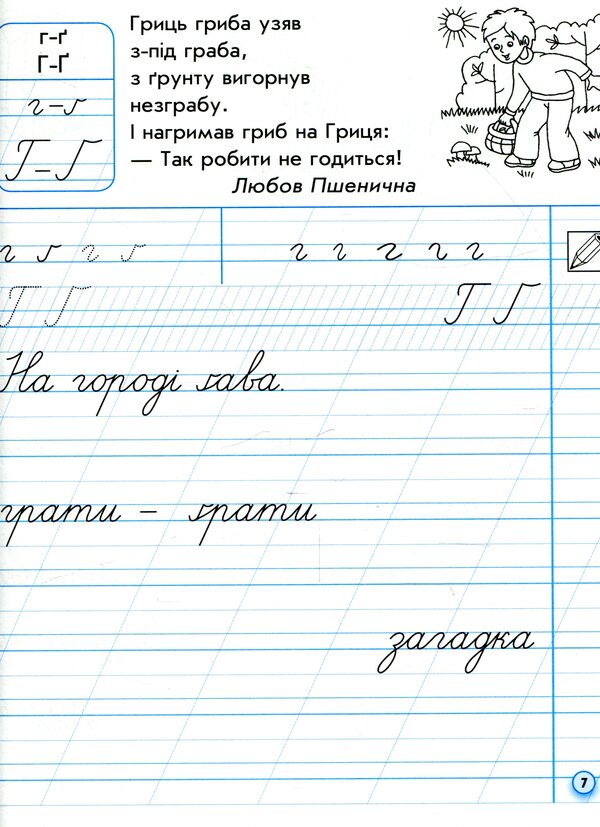 г-ґ
Г-Ґ
г-ґ
Г-Ґ
Гриць гриба узяв
з-під граба,
з ґрунту вигорнув
незграбу.
І нагримав гриб на Гриця:
— Так робити не годиться!
Любов Пшенична
г ґ г ґ
г г г г г
Г Ґ
Г Ґ
На городі ґава.
грати – ґрати
загадка
7